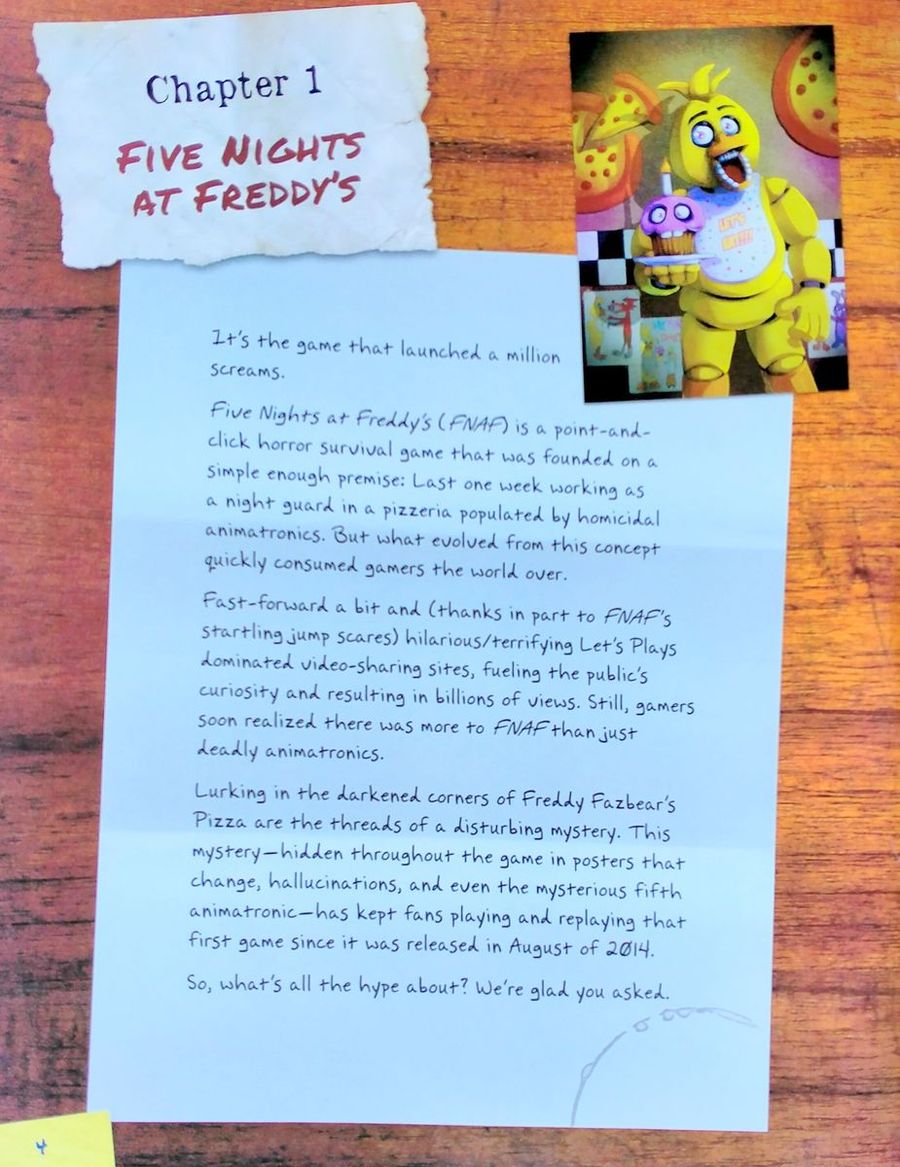 Chapter 1
FIVE NIGHTS
AT FREDDY'S
LET'S
EAT!!!
It's the game that launched a million
screams.
Five Nights at Freddy's (FNAF) is a point-and-
click horror survival game that was founded on a
simple enough premise: Last one week working as
a night guard in a pizzeria populated by homicidal
animatronics. But what evolved from this concept
quickly consumed gamers the world over.
Fast-forward a bit and (thanks in part to FNAF's
startling jump scares) hilarious/terrifying Let's Plays
dominated video-sharing sites, fueling the public's
curiosity and resulting in billions of views. Still, gamers
soon realized there was more to FNAF than just
deadly animatronics.
Lurking in the darkened corners of Freddy Fazbear's
Pizza are the threads of a disturbing mystery. This
mystery—hidden throughout the game in posters that
change, hallucinations, and even the mysterious fifth
animatronic—has kept fans playing and replaying that
first game since it was released in August of 2014.
So, what's all the hype about? We're glad you asked.
4